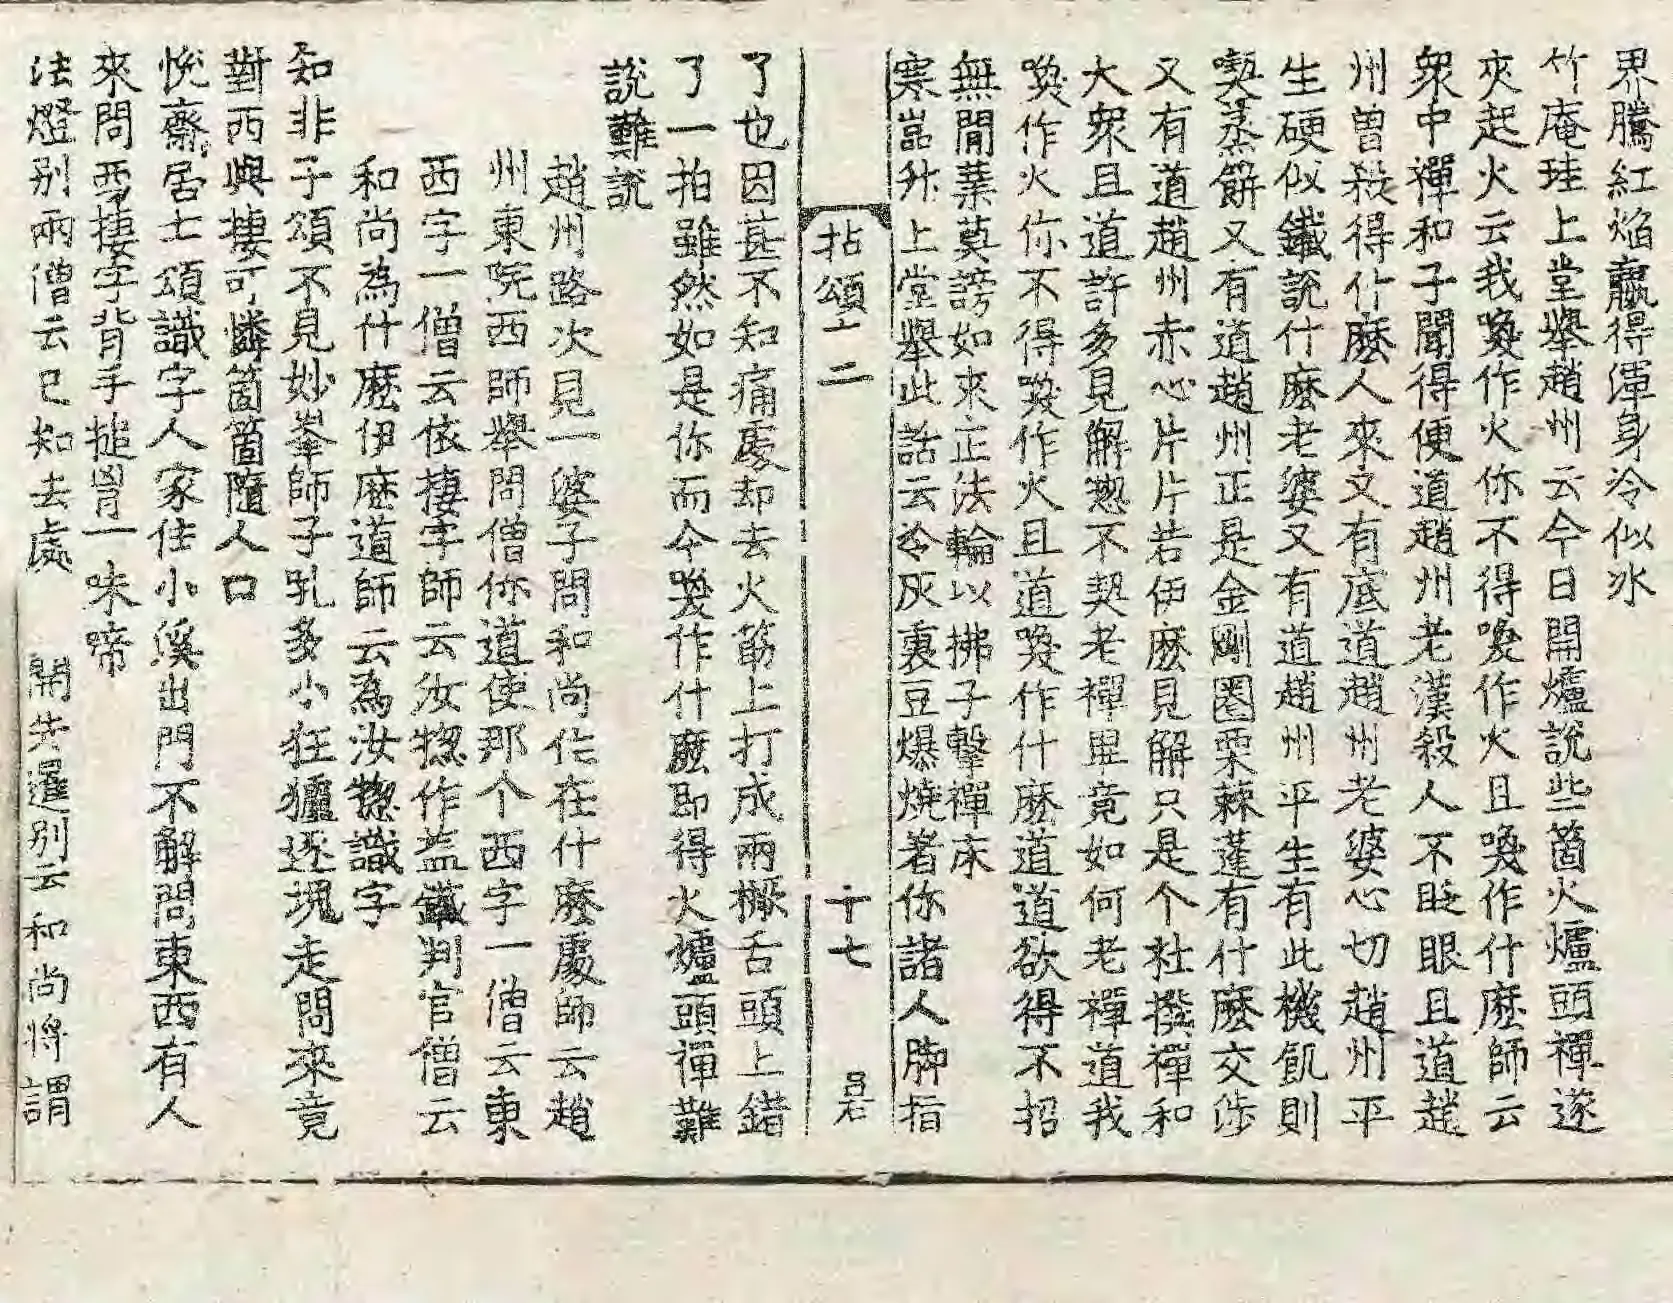 界騰紅焰贏得渾身冷似冰
竹庵珪上堂舉趙州云今日開爐說些箇火爐頭禪遂
夾起火云我喚作火你不得喚作火且喚作什麽師云
衆中禪和子聞得便道趙州老漢殺人不眨眼且道趙
州曾殺得什麽人來又有底道趙州老婆心切趙州平
生硬似鐵說什麽老婆又有道趙州平生有此機飢則
喫蒸餅又有道趙州正是金剛圈栗棘蓬有什麽交涉
又有道趙州赤心片片若伊麽見解只是个杜撰禪和
大衆且道許多見解惣不契老禪畢竟如何老禪道我
喚作火你不得喚作火且道喚作什麽道道欲得不招
無間業莫謗如來正法輪以拂子擊禪床
寒嵓升上堂擧此話云冷灰裏豆爆燒著你諸人脚指
拈頌十二 十七
了也因甚不知痛處却去火筯上打成兩橛舌頭上錯
了一拍雖然如是你而今喚作什麽即得火爐頭禪難
說難說
趙州路次見一婆子問和尚住在什麽處師云趙
州東院西師舉問僧你道使那个西字一僧云東
西字一僧云依棲字師云汝惣作盐鐵判官僧云
和尚為什麽伊麽道師云為汝惣識字
知非子頌不見妙峯師子吼多小狂獹逐塊走問來竟
對西與棲可憐箇箇隨人口
悅齋居士頌識字人家住小溪出門不解問東西有人
來問西棲字背手搥胷一味啼
法燈别兩僧云已知去處 開先暹别云和尚將謂